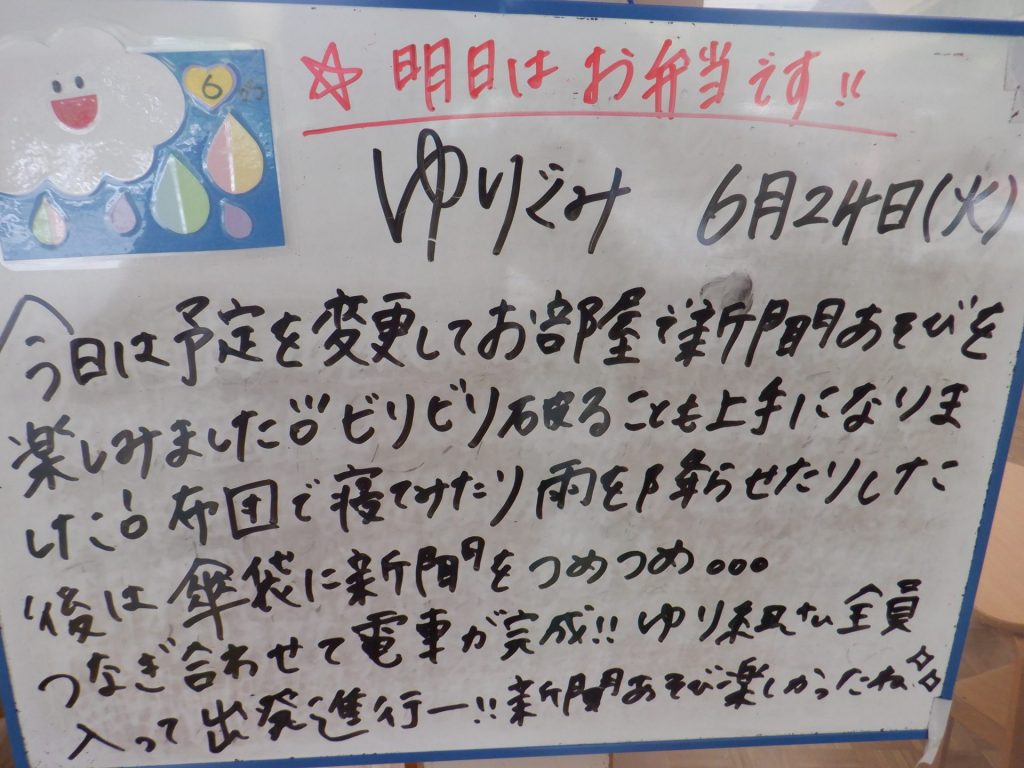 6がつ
☆明日はお弁当です!!
ゆりぐみ 6月24日(火)
今日は予定を変更してお部屋で新聞あそびを
楽しみました!! ビリビリ破ることも上手になりま
した! 布団で寝てみたり雨を降らせたりした
後は傘袋に新聞をつめつめ...
つなぎ合わせて電車が完成!! ゆり組さん全員
入って出発進行ー!! 新聞あそび楽しかったね